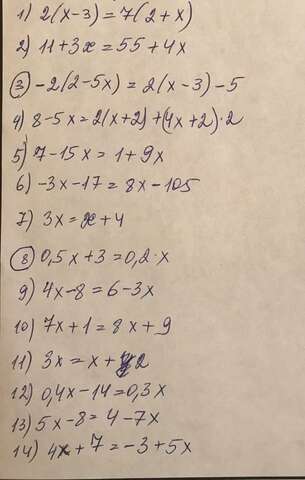 1) 2(x-3)=7(2+x)
2) 11+3x=55+4x
3) -2(2-5x)=2(x-3)-5
4) 8-5x=2(x+2)+(4x+2)·2
5) 7-15x=1+9x
6) -3x-17=8x-105
7) 3x=x+4
8) 0,5x+3=0,2·x
9) 4x-8=6-3x
10) 7x+1=8x+9
11) 3x=x+2
12) 0,4x-14=0,3x
13) 5x-8=4-7x
14) 4x+7=-3+5x